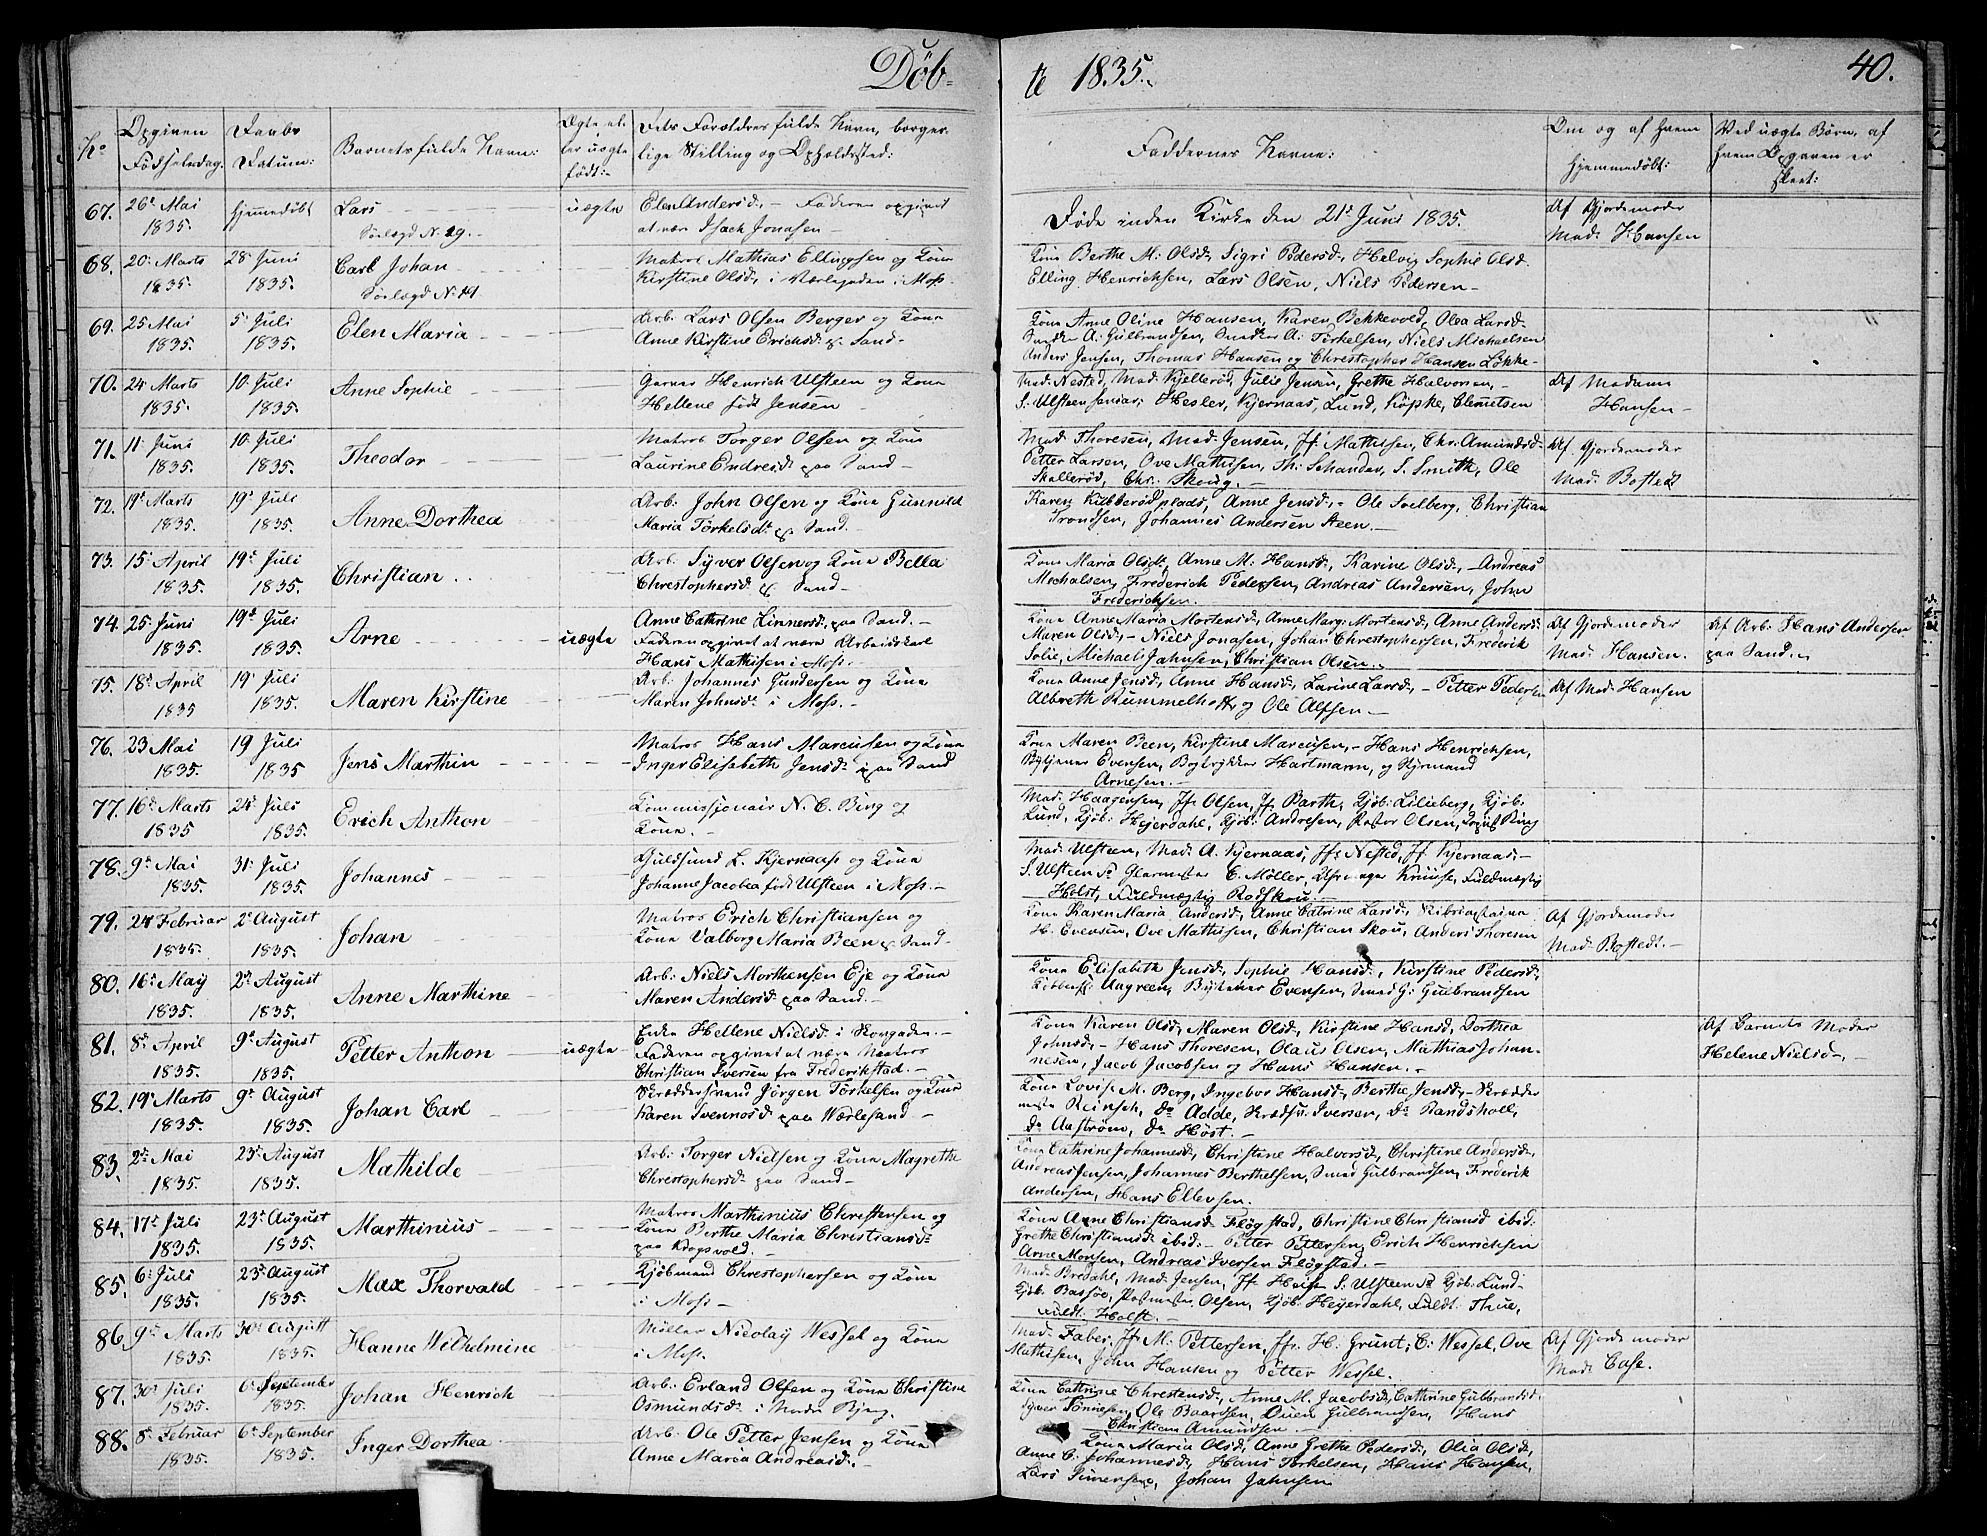 Døb-
te 1835.
40.
No
Opgiven Fødselsdag:
Daabs Datum:
Barnets fulde Navn:
Ægte eller uægte født:
Dets Forældres fulde Navn, borgerlige Stilling og Opholdssted:
Faddernes Navne:
Om og af hvem hjemmedøbt:
Ved uægte Børn, af hvem Opgaven er skeet:
67. 26de Mai 1835. hjemmedøbt Lars uægte Elen Andersd. - Faderen opgivet
Sølægd N. 19. at være Isach Jonasen -
Døde inden Kirke den 21de Juni 1835.
Af Gjordemoder
Mad. Hansen
68. 20. Marts 1835. 28. Juni 1835. Carl Johan Matros Mathias Ellingsen og Kone
Sølægd N. 19. Kirstine Olsd. i Værlegaden i Moss.
Kone Berthe M. Olsd., Sigri Pedersd., Helvig Sophie Olsd.
Elling Henrichsen, Lars Olsen, Niels Pedersen -
69. 25 Mai 1835. 5. Juli 1835. Elen Maria Arb. Lars Olsen Berger og Kone
Anne Kirstine Erichsd. p. Sand.
Kone Anne Oline Hansen, Karen Bekkevold, Olea Larsd.
A. Gulbrandsen, A. Torkelsen, Niels Michaelsen
Anders Jensen, Thomas Hansen og Christopher Hansen Løkke
70. 24 Marts 1835. 10. Juli 1835. Anne Sophie Garver Henrich Ulsteen og Kone
Hellene født Jensen
Mad. Nested, Mad. Kjellerød, Julie Jensen, Grethe Halvorsen, -
S. Ulsteen senior, Hesler, Kjernaas, Lund, Köpke, Clemetsen
Af Madame
Hansen -
71. 11. Juni 1835. 10. Juli 1835. Theodor Matros Torger Olsen og Kone
Laurine Endresd. paa Sand -
Mad. Thoresen, Mad. Jensen, Jf. Mathisen, Chr. Amundsd.
Petter Larsen, Ove Mathisen, Th. Schander, S. Smith, Ole
Skallerød, Chr. Skoug. -
Af Gjordemoder
Mad. Bostedt
72. 19de Marts 1835. 19de Juli 1835. Anne Dorthea Arb. John Olsen og Kone Gunnild
Maria Torkelsdt. p. Sand.
Karen Kibberødplads, Anne Jensd., - Ole Solberg, Christian
Trondsen, Johannes Andersen Steen. -
73. 15. April 1835. 19de Juli 1835. Christian Arb. Syver Olsen og Kone Bella
Christophersd. p. Sand -
Kone Maria Olsdt., Anne M. Hansd., Karine Olsd., - Andreas
Michalsen, Frederich Pedersen, Andreas Andersen, John
Frederichsen.
74. 25. Juni 1835. 19de Juli 1835. Arne uægte Anne Cathrine Linnersd. paa Sand. -
Faderen opgivet at være Arbeidskarl
Hans Mathisen i Moss. -
Kone Anne Maria Mortensd., Anne Marg. Mortensd., Anne Andersd.
Maren Olsd., - Niels Jonasen, Johan Christophersen, Frederik
Solie, Michael Jahnsen, Christian Olsen. -
Af Gjordemoder
Mad. Hansen.
Af Arb. Hans Andersen
paa Sand. -
75. 18de April 1835 19. Juli 1835. Maren Kirstine Arb. Johannes Gundersen og Kone
Maren Johnsd. i Moss. -
Kone Anne Jensd., Anne Hansd., Larine Larsd., - Petter Pedersen
Albreth Rummelhoff, og Ole Alfsen. -
Af Mad. Hansen
76. 23 Mai 1835. 19 Juli 1835 Jens Marthin Matros Hans Marcussen og Kone
Inger Elisabeth Jensd. paa Sand
Kone Maren Been, Kirstine Marcusen, - Hans Henrichsen,
Evensen, Bogtrykker Hartmann, og
Arnesen. -
77. 16de Marts 1835 24de Juli 1835. Erich Anthon Kommissionair N. C. Bing og
Kone. -
Mad. Haagensen, Jf. Olsen, Jf. Barth, Kjøb. Lilieberg, Kjøb.
Lund, Kjøb. Hejerdahl, Kjøb. Andresen, Pastor Olsen, Bing
78. 9de Mai 1835. 31. Juli 1835. Johannes Guldsmed L. Kjernaass og Kone
Johanne Jacobea født Ulsteen i Moss. -
Mad. Ulsteen, Mad. A. Kjernaas, Jf. Nested, Jf. Kjernaas, -
S. Ulsteen Sr. Glarmester C. Møller, Knuse, Fuldmægtig
Holst, Fuldmægtig Rodskou. -
79. 24 Februar 1835. 2de August 1835. Johan Matros Erich Christiansen og
Kone Valborg Maria Been p. Sand.
Kone Karen Maria Andersd., Anne Catrine Larsd.,
H. Evensen, Ove Mathisen, Christian Skou, Anders Thoresen
Af Gjordemoder
Mad. Bostedt. -
80. 16de May 1835. 2de August 1835. Anne Marthine Arb. Niels Morthensen Eje og Kone
Maren Andersd. paa Sand. -
Kone Elisabeth Jensd., Sophie Hansd., Kirstine Pedersd.,
Ungreen, Evensen, Smed G. Gulbrandsen
81. 8de April 1835. 9de August 1835. Petter Anthon uægte Enke Hellene Nielsd. i Skougaden. -
Faderen opgivet at være Matros
Christian Iversen fra Frederikstad. -
Kone Karen Olsd., Maren Olsd., Kirstine Hansd., Dorthea
Johnsd., - Hans Thoresen, Olaus Olsen, Mathias Johan-
nesen, Jacob Jacobsen og Hans Hansen. -
Af Barnets Moder
Helene Nielsd., -
82. 19de Marts 1835. 9de August 1835. Johan Carl Skræddersvend Jørgen Torkelsen og Kone
Karen Svennosd. paa Værlesand. -
Kone Lovise M. Berg, Ingebor Hansd., Berthe Jensd., Skrædder
mester Reinsch, do Adde, Skrædsv. Iversen, do Randsholl,
do Aastrøm, do Høst. -
83. 2de Mai 1835. 23de August 1835. Mathilde Arb. Torger Nielsen og Kone Magrethe
Christophersd. paa Sand -
Kone Cathrine Johannesd., Christine Halvorsd., Christine Andersd.,
Andreas Jensen, Johannes Berthelsen, Smed Gulbrandsen, Frederik
Andersen, Hans Ellevsen.
84. 17de Juli 1835. 23de August 1835. Marthinius Matros Marthinius Christensen og
Kone Berthe Maria Christiansd.
paa Krogsvold. -
Kone Anne Christiansd. Fløgstad, Christine Christiansd. ibid.
Grethe Christiansd. ibid. - Petter Pettersen, Erich Henrichsen
Arne Monsen, Andreas Iversen Fløgstad. -
85. 6. Juli 1835. 23de August 1835. Max Thorvald Kjøbmand Christophersen og Kone
i Moss -
Mad. Bredahl, Mad. Jensen, Jf. Heise, S. Ulsteen Sr. Kjøb. Lund -
Kjøb. Bassøe, Postmester Olsen, Kjøb. Heyerdahl, Fuldt. Thue,
Fuldt. Holst. -
86. 9de Marts 1835. 30de August 1835. Hanne Wilhelmine Møller Nicolay Wessel og Kone
i Moss.
Mad. Faber, Jf. M. Pettersen, Jfr. H. Grunt, C. Wessel, Ove
Mathisen, John Hansen og Petter Wessel.
Af Gjordemoder
Mad. Case.
87. 30de Juli 1835. 6. September 1835. Johan Henrich Arb. Erland Olsen og Kone Christine
Osmundsd. i Mosse Bjerg.
Kone Cathrine Christensd., Anne M. Jacobsd., Cathrine Gulbrandsd.
Syver Tønnesen, Ole Baardsen, Gulbrandsen, Hans
Christian Amundsen
88. 8de Februar 1835. 6de September 1835. Inger Dorthea Arb. Ole Petter Jensen og Kone
Anne Maria Andreasd. -
Kone Maria Olsd., Anne Grethe Pedersd., Olia Olsd.,
Anne C. Johannesd., Hans Torkelsen, Hans Hansen,
Lars Simensen, Johan Jahnsen